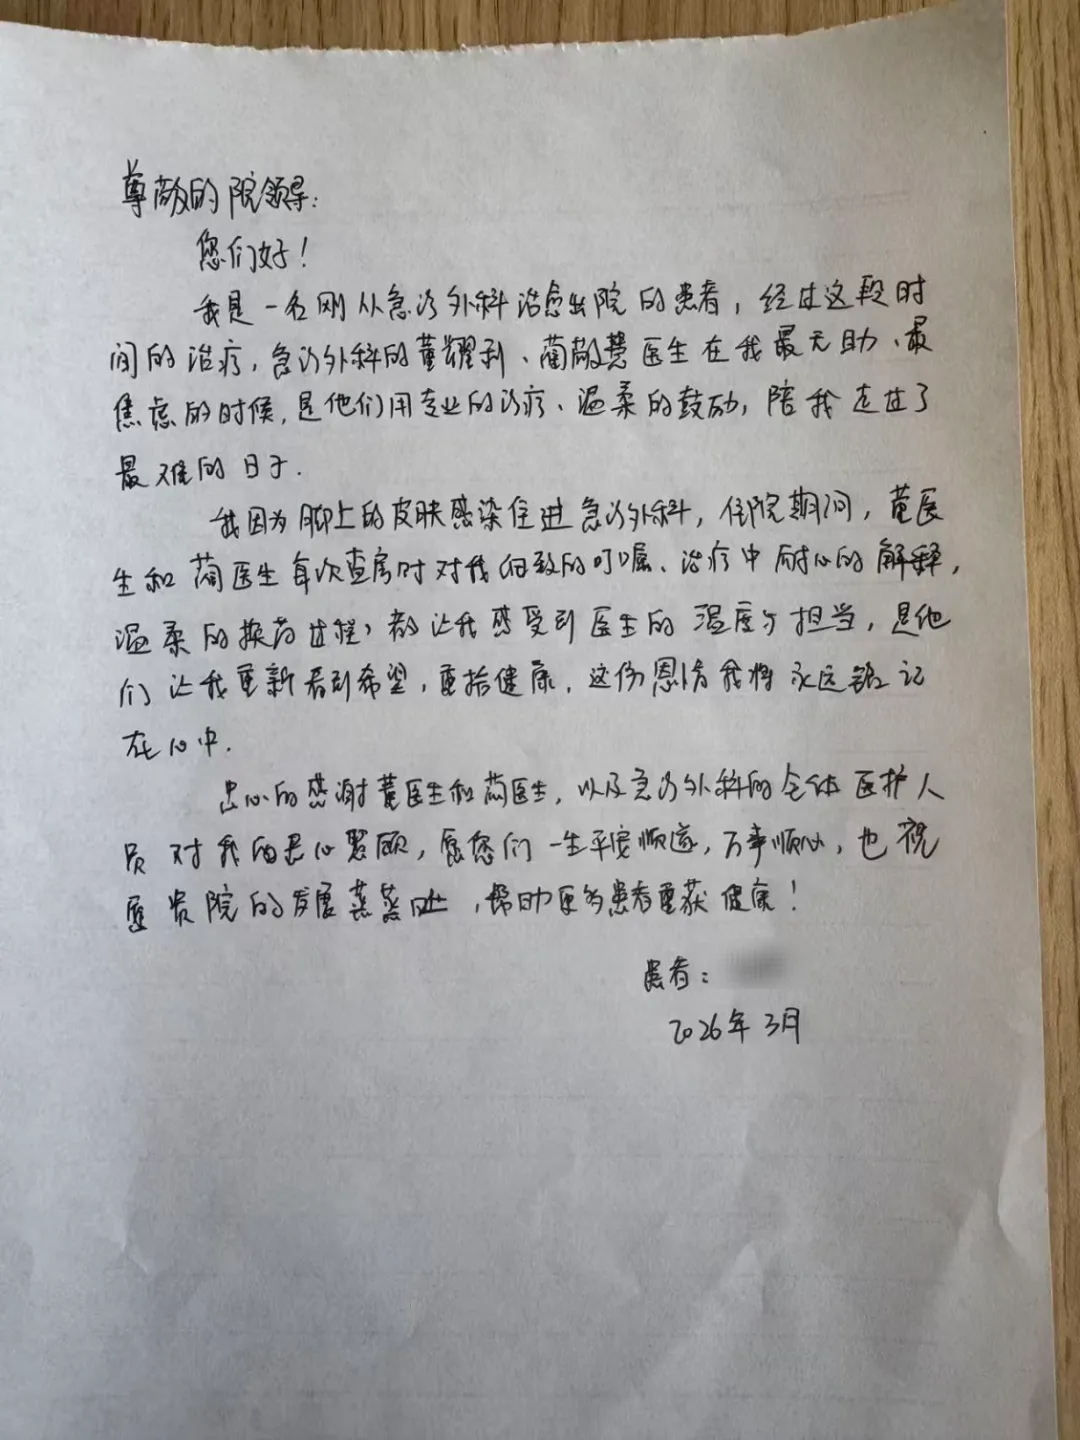 尊敬的院领导:
您们好!
我是一名刚从急诊外科治愈出院的患者,经过这段时
间的治疗,急诊外科的董耀利、蔺敬慧医生在我最无助、最
焦虑的时候,是他们用专业的诊疗、温柔的鼓励,陪我走过了
最难的日子.
我因为脚上的皮肤感染住进急诊外科,住院期间,董医
生和蔺医生每次查房时对我细致的叮嘱、治疗中耐心的解释,
温柔的换药过程,都让我感受到医生的温度与担当,是他
们让我重新看到希望,重拾健康,这份恩情我将永远铭记
在心中.
衷心的感谢董医生和蔺医生,以及急诊外科的全体医护人
员对我的悉心照顾,愿您们一生平安顺遂,万事顺心,也祝
愿贵院的发展蒸蒸日上,帮助更多患者重获健康!
患者:
2026年3月